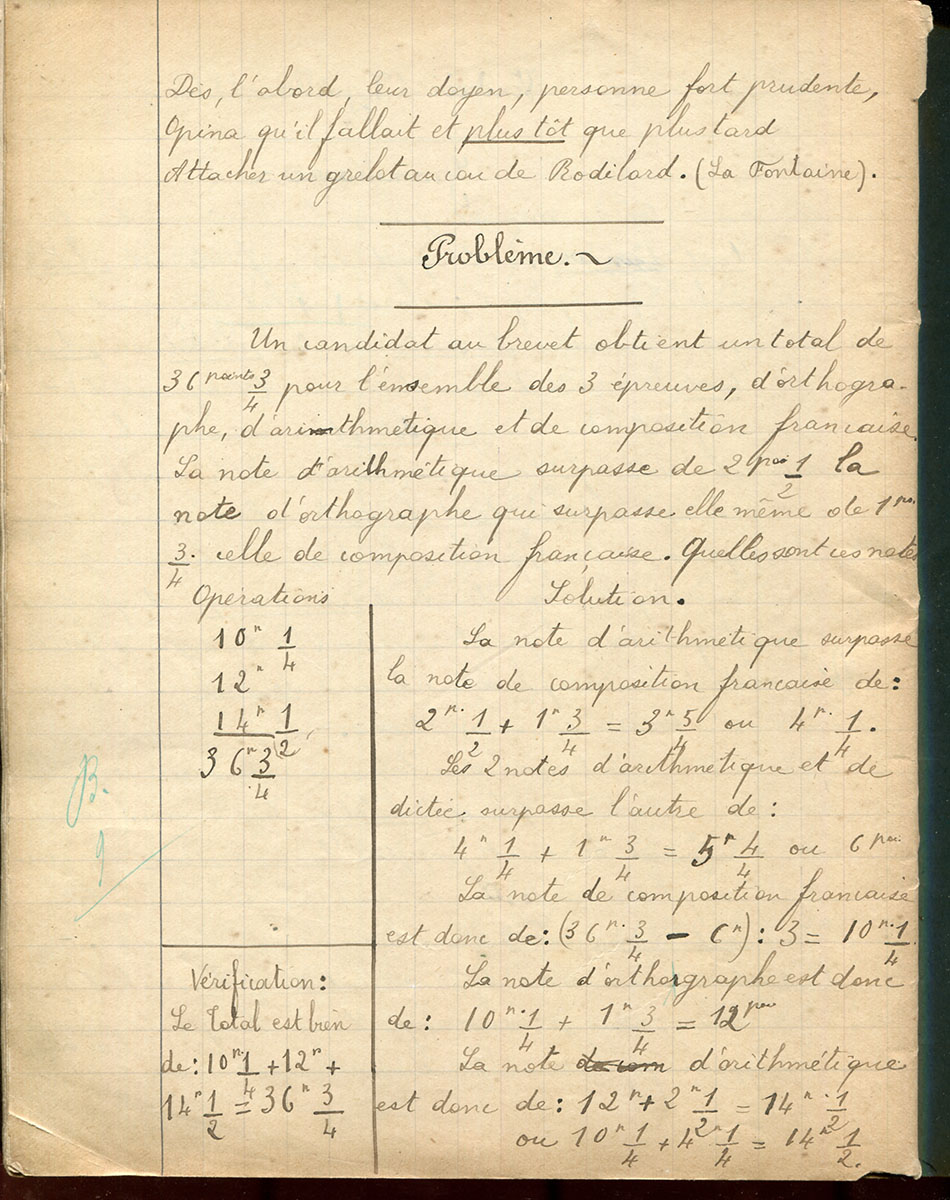 Dès, l'abord, leur doyen, personne fort prudente,
Opina qu'il fallait et plus tôt que plus tard
Attacher un grelot au cou de Rodilard. (La Fontaine).
Problème.
Un candidat au brevet obtient un total de
36 points 3/4 pour l'ensemble des 3 épreuves, d'orthogra-
phe, d'arithmétique et de composition francaise
La note d'arithmétique surpasse de 2 poi 1/2 la
note d'orthographe qui surpasse elle même de 1 poi
3/4 celle de composition française. Quelles sont ces notes
Opérations
10ⁿ 1/4
12ⁿ
14ⁿ 1/2
36ⁿ 3/4
B.
9
Vérification:
Le Total est bien
de: 10ⁿ 1/4 + 12ⁿ +
14ⁿ 1/2 = 36ⁿ 3/4
Solution.
La note d'arithmétique surpasse
la note de composition francaise de:
2ⁿ· 1/2 + 1ⁿ 3/4 = 3ⁿ 5/4 ou 4ⁿ· 1/4.
Les 2 notes d'arithmétique et de
dictée surpasse l'autre de:
4ⁿ 1/4 + 1ⁿ 3/4 = 5ⁿ 4/4 ou 6 poi
La note de composition francaise
est donc de: (36ⁿ· 3/4 - 6ⁿ) : 3 = 10ⁿ· 1/4
La note d'orthorgraphe est donc
de: 10ⁿ· 1/4 + 1ⁿ 3/4 = 12 poi
La note de com d'arithmétique
est donc de: 12ⁿ + 2ⁿ 1/2 = 14ⁿ· 1/2
ou 10ⁿ 1/4 + 4ⁿ 1/4 = 14ⁿ 1/2.